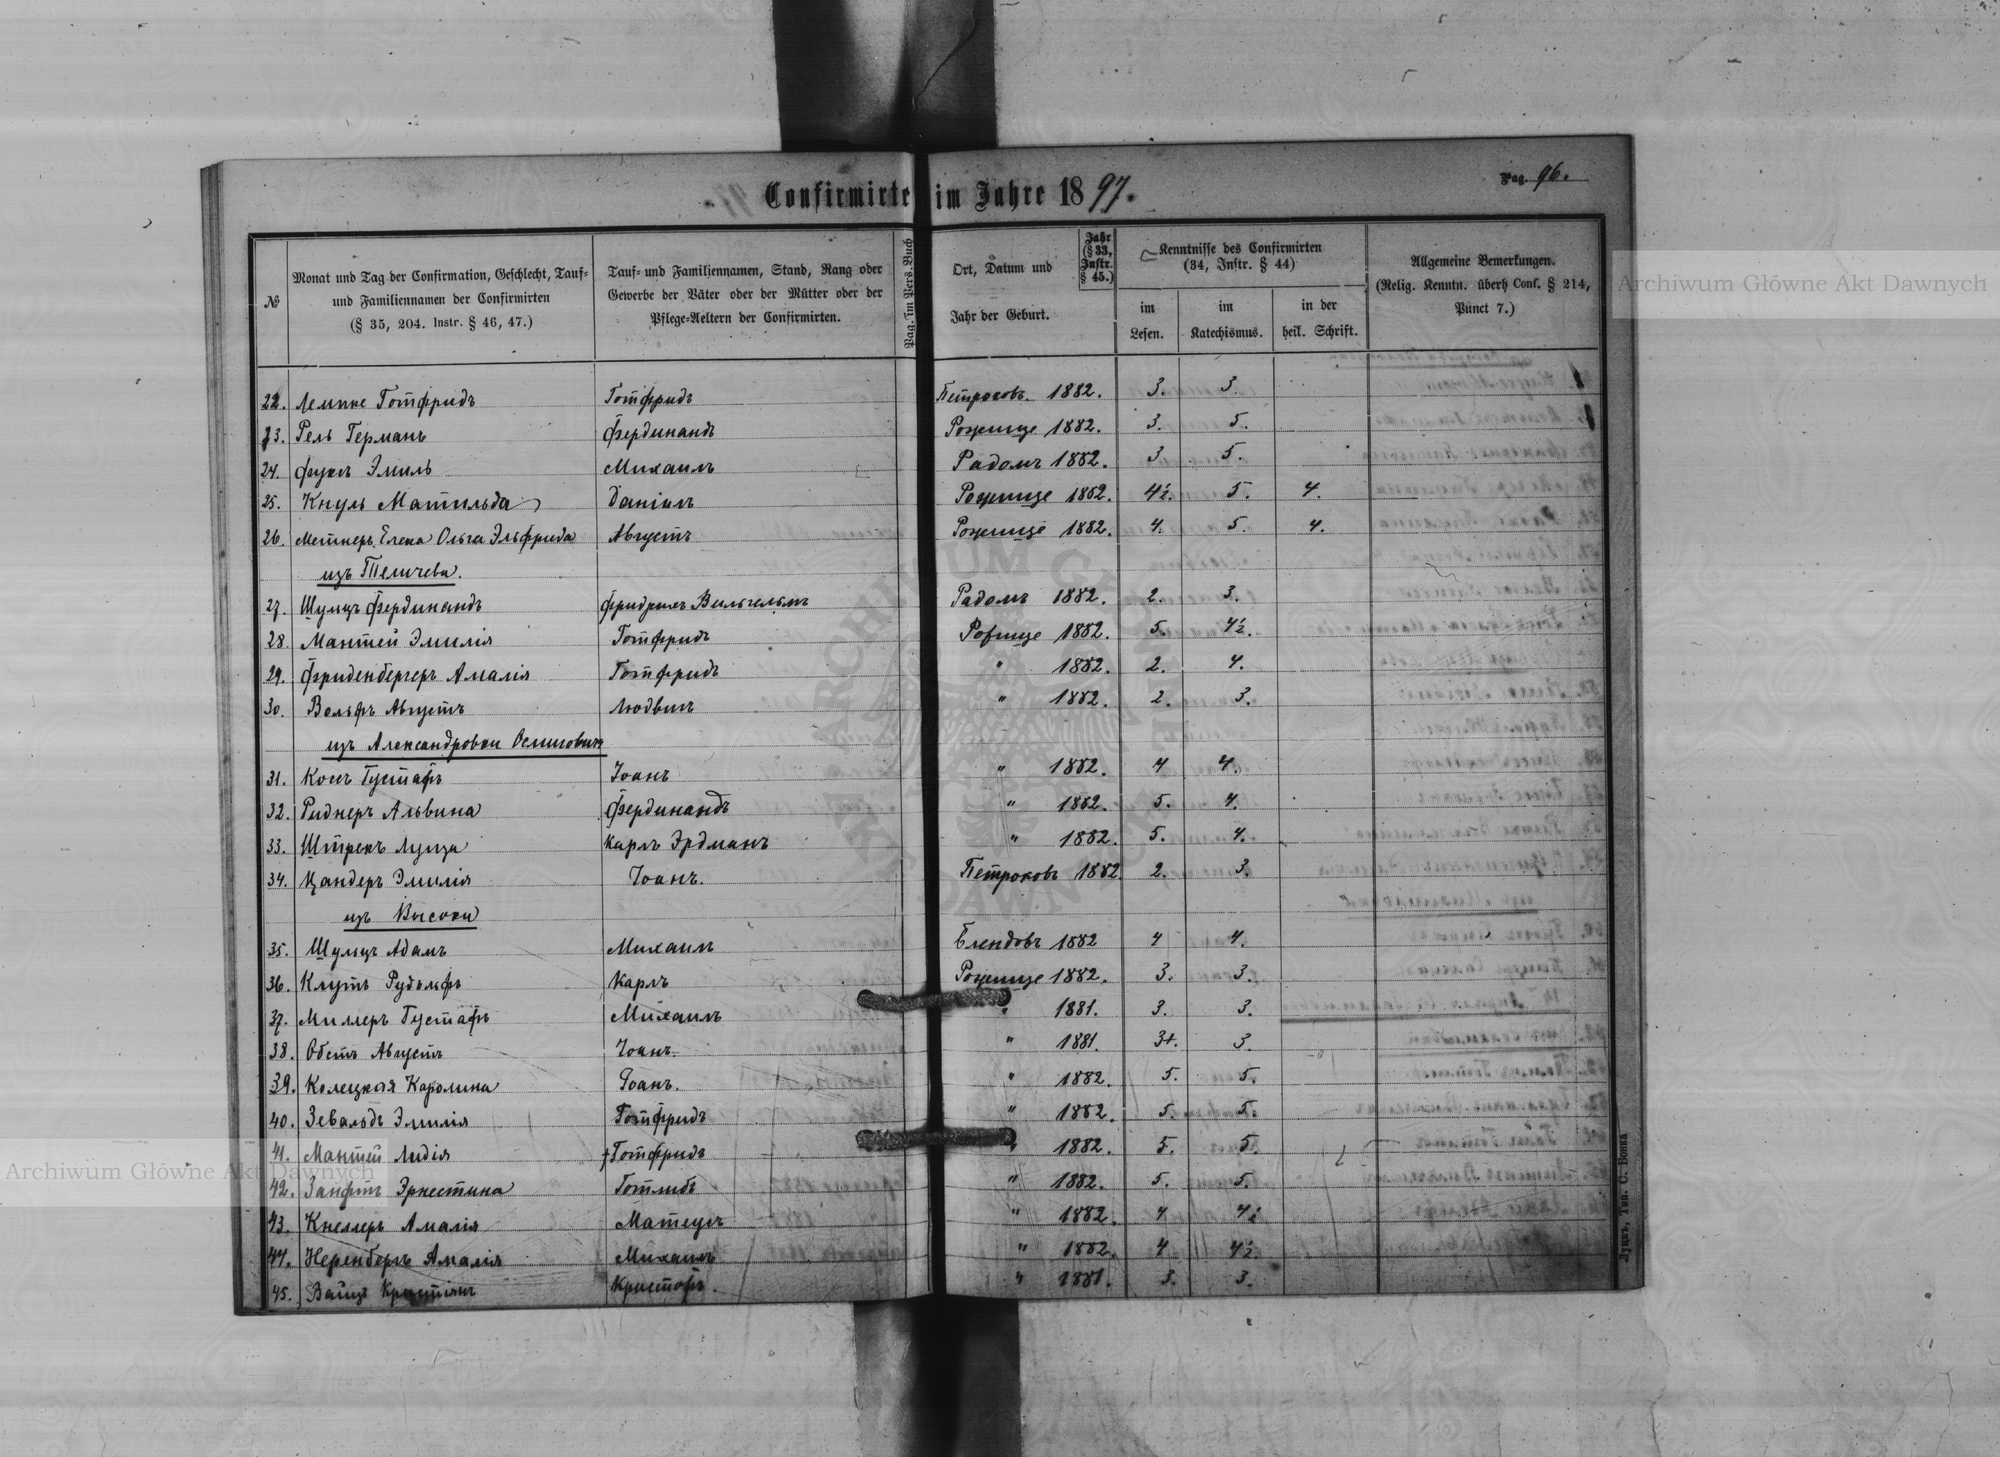 Confirmirte im Jahre 1897.
Pag. 96.
№
Monat und Tag der Confirmation, Geschlecht, Tauf-
und Familiennamen der Confirmirten
(§ 35, 204. Instr. § 46, 47.)
Tauf- und Familiennamen, Stand, Rang oder
Gewerbe der Väter oder der Mütter oder der
Pflege-Aeltern der Confirmirten.
Pag. im Pers. Buch
Ort, Datum und
Jahr der Geburt.
Jahr
(§ 33,
Instr.
§ 45.)
Kenntnisse des Confirmirten
(34, Instr. § 44)
im
Lesen.
im
Katechismus.
in der
heil. Schrift.
Allgemeine Bemerkungen.
(Relig. Kenntn. überh Conf. § 214,
Punct 7.)
22. Лемпке Готфридъ Готфридъ Петроковъ. 1882. 3. 3.
23. Рель Германъ Фердинандъ Рожище 1882. 3. 5.
24. Фуксъ Эмиль Михаилъ Радомъ 1882. 3 5.
25. Кнуль Матильда Даніилъ Рожище 1882. 4½. 5. 4.
26. Метнеръ Елена Ольга Эльфрида Августъ Рожище 1882. 4. 5. 4.
изъ Теличева.
27. Шульцъ Фердинандъ Фридрихъ Вильгельмъ Радомъ 1882. 2. 3.
28. Мантей Эмилія Готфридъ Рожище 1882. 5. 4½.
29. Фриденбергеръ Амалія Готфридъ " 1882. 2. 4.
30. Вольфъ Августъ Людвигъ " 1882 2. 3.
изъ Александровки Осмиговичи
31. Коссъ Густафъ Іоанъ " 1882. 4 4.
32. Риднеръ Альвина Фердинандъ " 1882. 5. 4.
33. Штрекъ Луиза Карлъ Эрдманъ " 1882. 5. 4.
34. Цандеръ Эмилія Іоанъ. Петроковъ 1882 2. 3.
изъ Высоки
35. Шульцъ Адамъ Михаилъ Блендовъ 1882 4 4.
36. Клутъ Рудольфъ Карлъ Рожище 1882. 3. 3.
37. Миллеръ Густафъ Михаилъ " 1881. 3. 3.
38. Обстъ Августъ Іоанъ. " 1881. 3+. 3.
39. Колецкая Каролина Іоанъ. " 1882. 5. 5.
40. Зевальдъ Эмилія Готфридъ " 1882. 5. 5.
41. Мантей Лидія †Готфридъ " 1882. 5. 5.
42. Занфтъ Эрнестина Готлибъ " 1882. 5. 5.
43. Кнеллеръ Амалія Матеушъ " 1882. 4 4½
44. Неренбергъ Амалія Михаилъ " 1882. 4 4½.
45. Вайцъ Кристіянъ Кристофъ. " 1881. 3. 3.
Луцкъ, Тип. С. Бонка
Archiwum Główne Akt Dawnych
Archiwum Główne Akt Dawnych